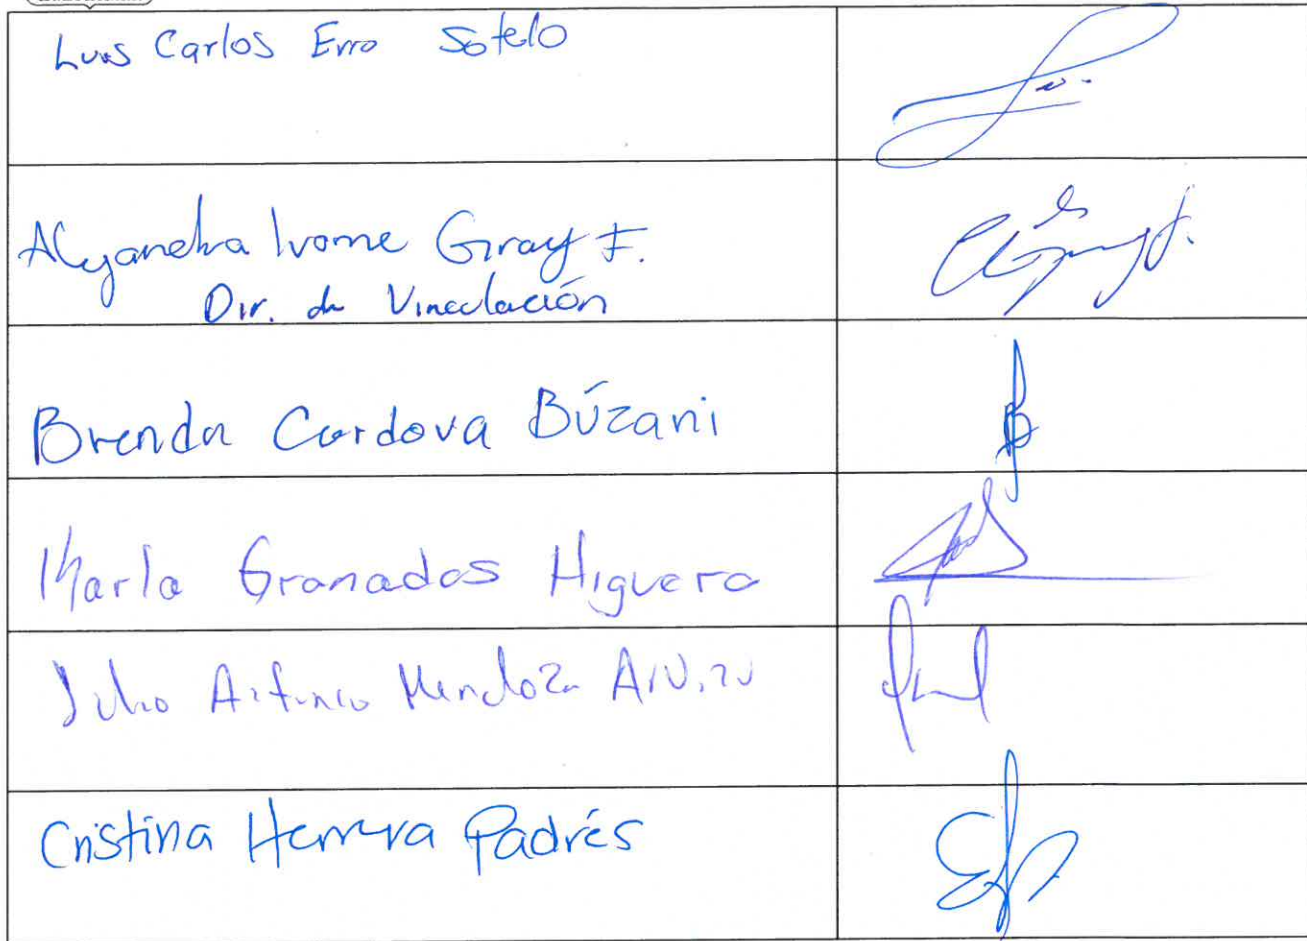 Luis Carlos Erro Sotelo
Alejandra Ivonne Giray F.
Dir. de Vinculación
Brenda Cordova Búzani
Karla Granados Higuera
Julio Antonio Mendoza Arvizu
Cristina Herrera Padrés